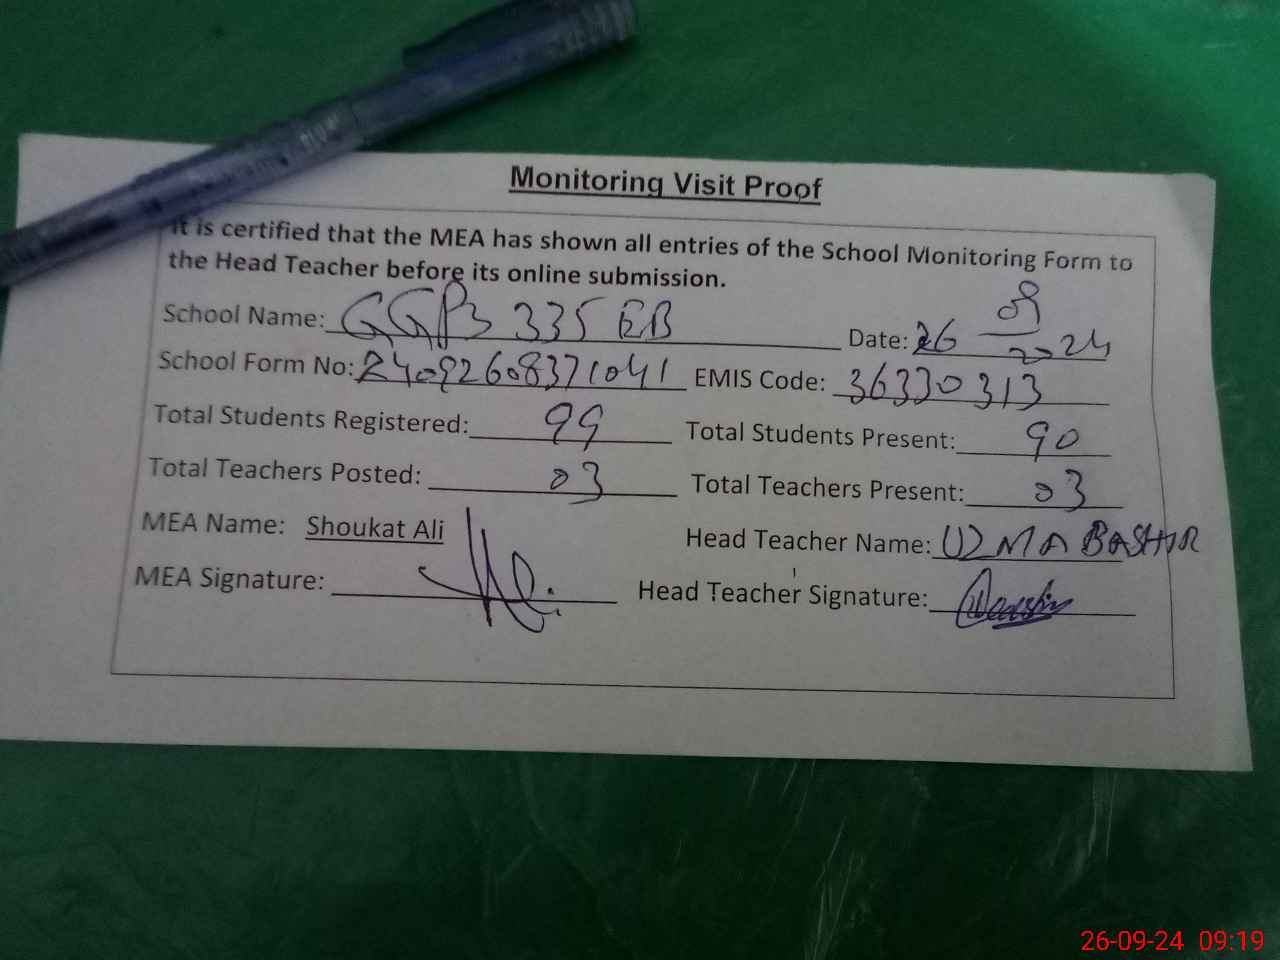 Monitoring Visit Proof
It is certified that the MEA has shown all entries of the School Monitoring Form to
the Head Teacher before its online submission.
School Name: GGPS 335 EB Date: 26 09 2024
School Form No: 24092608371041 EMIS Code: 36330313
Total Students Registered: 99 Total Students Present: 90
Total Teachers Posted: 03 Total Teachers Present: 03
MEA Name: Shoukat Ali Head Teacher Name: UZMA BASHIR
MEA Signature: Head Teacher Signature:
26-09-24 09:19